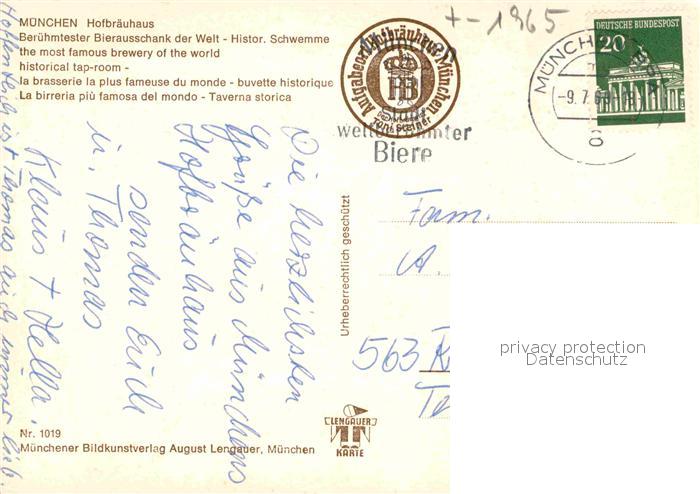 MÜNCHEN Hofbräuhaus
Berühmtester Bierausschank der Welt - Histor. Schwemme
the most famous brewery of the world
historical tap-room -
la brasserie la plus fameuse du monde - buvette historique
La birreria più famosa del mondo - Taverna storica
+-1965
Aufgaben Hofbräuhaus München
HB
Toni Steiner
Stadt
weltberühmter
Biere
MÜNCHEN
-9.7.6
DEUTSCHE BUNDESPOST
20
Die herzlichsten
Grüße aus Münchens
Hofbräuhaus
senden Euch
u. Thomas
Klaus + Hella.
Thomas auch immer lieb.
Urheberrechtlich geschützt
Fam.
A.
563 R
privacy protection
Datenschutz
LENGAUER
KARTE
Nr. 1019
Münchener Bildkunstverlag August Lengauer, München